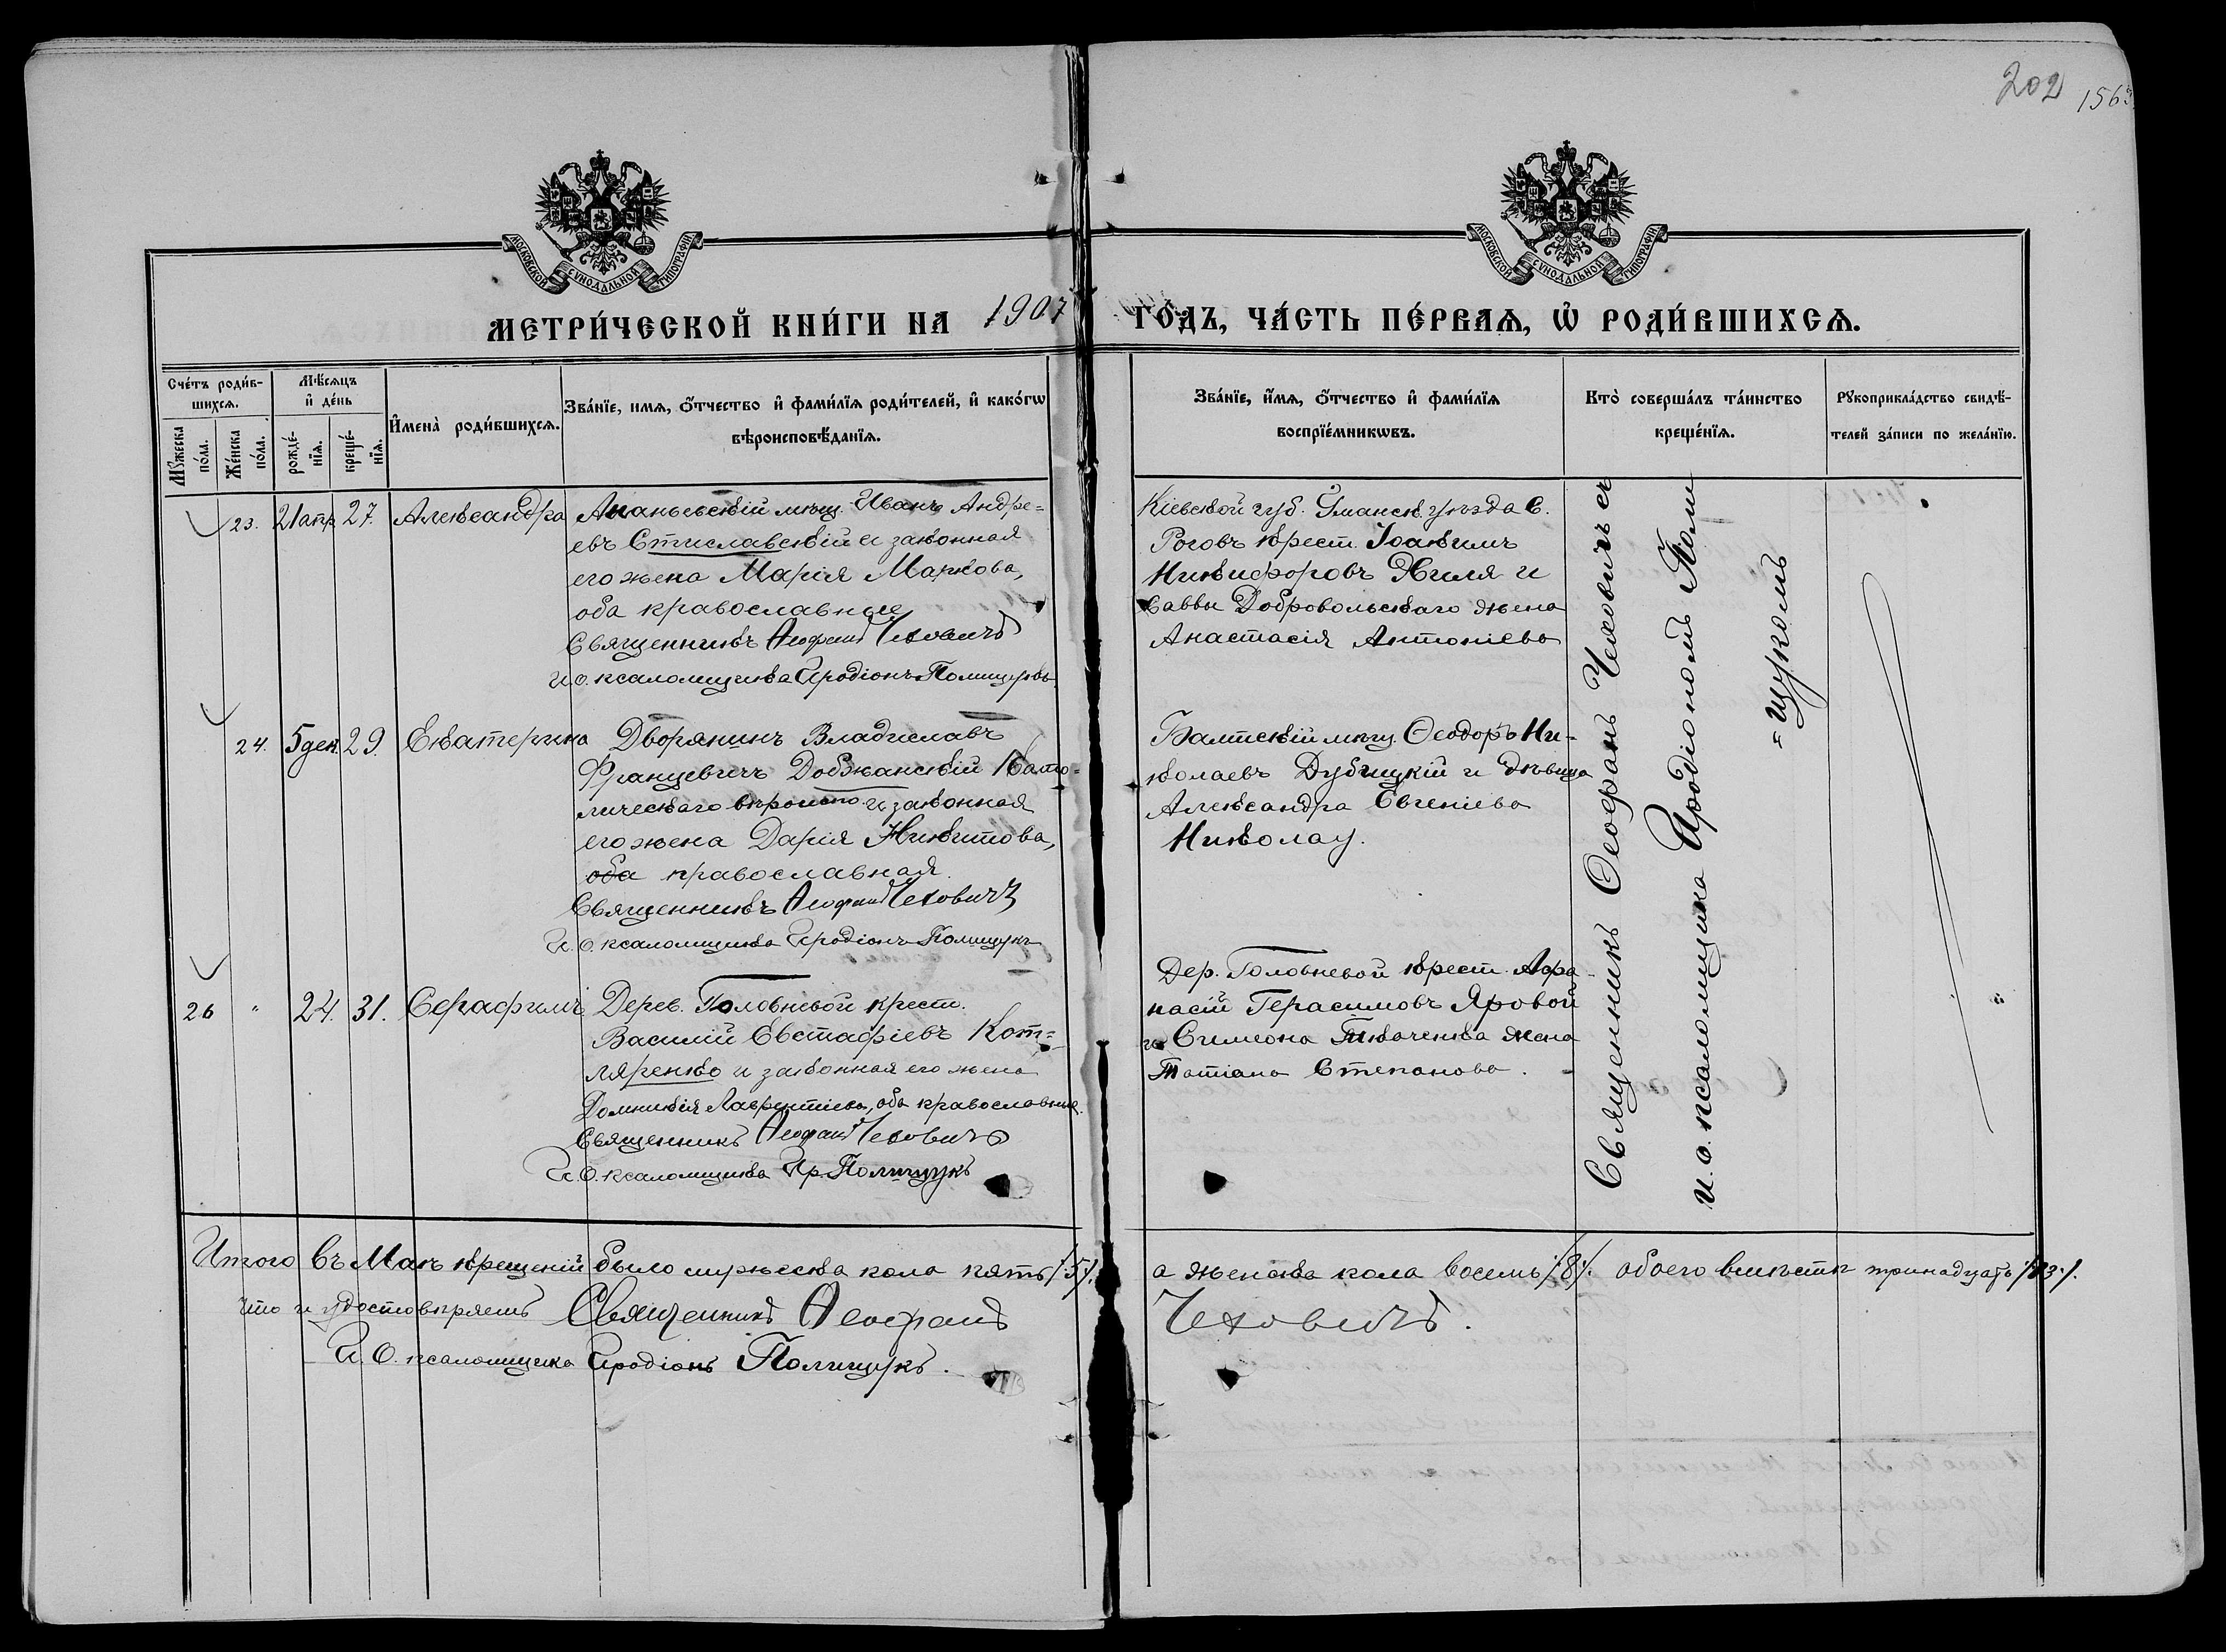 202 156
МОСКОВСКОЙ СѴНОДАЛЬНОЙ ТИПОГРАФІИ
МОСКОВСКОЙ СѴНОДАЛЬНОЙ ТИПОГРАФІИ
МЕТРИ́ЧЕСКОЙ КНИ́ГИ НА 1907 ГО́ДЪ, ЧА́СТЬ ПЕ́РВАѦ, Ѡ РОДИ́ВШИХСѦ.
Сче́тъ роди́в-
шихсѧ.
Мꙋ́жеска по́ла.
Же́нска по́ла.
Мѣ́сѧцъ
и де́нь
рожде́-
нїѧ.
креще́-
нїѧ.
Имена̀ роди́вшихсѧ.
Зва́нїе, имѧ, о́тчество и фами́лїѧ роди́телей, и како́гѡ
вѣроисповѣ́данїѧ.
Зва́нїе, и́мѧ, о́тчество и фами́лїѧ
воспрїе́мникѡвъ.
Кто̀ соверша́лъ та́инство
креще́нїѧ.
Рꙋкоприкла́дство свидѣ́-
телей за́писи по жела́нїю.
23. 21 апр 27. Александра
Ананьевскій мѣщ. Иванъ Андре=
евъ Стиславскій и законная
его жена Марія Маркова,
оба православные
Священникъ Ѳеофанъ Чеховичъ
И.О. псаломщика Иродіонъ Полищукъ.
Кіевской губ. Уманск. уѣзда С.
Роговъ крест. Іоакимъ
Никифоровъ Хиля и
Саввы Добровольскаго жена
Анастасія Антоніева
24. 5 дек. 29. Екатерина
Дворянинъ Владиславъ
Францевичъ Добжанскій Като=
лическаго вѣроисп. и законная
его жена Дарія Никитова,
оба православная.
Священникъ Ѳеофанъ Чеховичъ
И.О. псаломщика Иродіонъ Полищукъ
Балтскій мѣщ. Ѳеодоръ Ни-
колаевъ Дубицкій и дѣвица
Александра Евгеніева
Николау.
26 " 24. 31. Серафимъ
Дерев. Головневой крест.
Василій Евстафіевъ Кот=
ляренко и законная его жена
Домникія Лаврентіева, оба православные.
Священникъ Ѳеофанъ Чеховичъ
И.О. псаломщика Ир. Полищукъ
Дер. Головневой крест. Афа-
насій Герасимовъ Яровой
и Симеона Ткаченка жена
Татіана Степанова.
Священникъ Ѳеофанъ Чеховичъ съ
и.о. псаломщика Иродіономъ Поли
=щукомъ
Итого въ Маѣ крещеній было мужеска пола пять /5/. а женска пола восемь /8/. обоего вмѣстѣ тринадцать /13/.
что и удостовѣряемъ Священникъ Ѳеофанъ Чеховичъ.
И.О. псаломщика Иродіонъ Полищукъ.